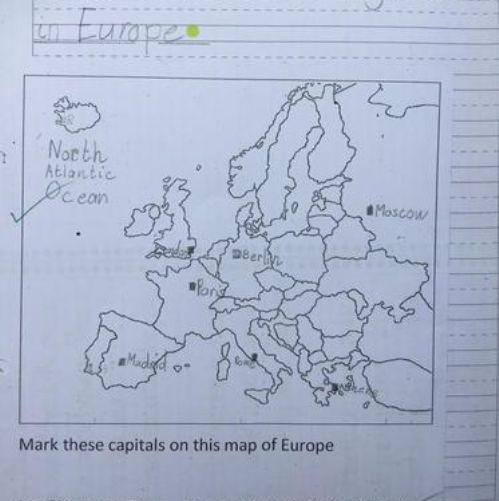 in Europe
North
Atlantic
Ocean
Moscow
London
Berlin
Paris
Madrid
Rome
Athens
Mark these capitals on this map of Europe